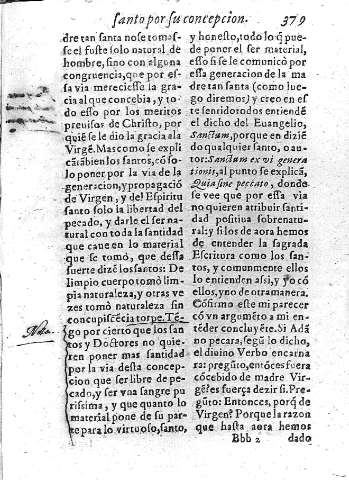 santo por su concepcion. 379
dre tan santa no se tomas-
se el fuste solo natural de
hombre, sino con alguna
congruencia, que por es-
sa via mereciesse la gra-
cia al que concebia, y to-
do esso por los meritos
preuisos de Christo, por
quiẽ se le dio la gracia a la
Virgẽ. Mas como se expli
cã tãbien los santos, cõ so-
lo poner por la via de la
generacion, y propagaciõ
de Virgen, y del Espiritu
santo solo la libertad del
pecado, y darle el ser na-
tural con toda la santidad
que caue en lo material
que se tomó, que dessa
suerte dizẽ los santos: De
limpio cuerpo tomò lim
pia naturaleza, y otras ve
zes tomò naturaleza sin
concupiscẽcia torpe. Tẽ-
go por cierto que los san
tos y Doctores no quie-
ren poner mas santidad
por la via desta concep-
cion que ser libre de pe-
cado, y ser vna sangre pu
rissima, y que quanto lo
material pone de su par-
te para lo virtuoso, santo,
y honesto, todo lo q̃ pue-
de poner el ser material,
esso si se le comunicò por
essa generacion de la ma
dre tan santa (como lue-
go diremos) y creo en es
te sentido todos entiendẽ
el dicho del Euangelio,
Sanctum, porque en diziẽ
do qualquier santo, o au-
tor: Sanctum ex vi genera
tionis, al punto se explicã,
Quia sine peccato, donde
se vee que por essa via
no quieren atribuir santi-
dad positiua sobrenatu-
ral: y si los de aora hemos
de entender la sagrada
Escritura como los san-
tos, y comunmente ellos
lo entienden assi, y yo cõ
ellos, y no de otra manera.
Cõfirmo este mi parecer
cõ vn argumẽto a mi en-
tẽder concluyẽte. Si Adã
no pecara, segũ lo dicho,
el diuino Verbo encarna
ra: pregũto, entõces fuera
cõcebido de madre Vir-
gẽ? es fuerça dezir si. Pre-
gũto: Entonces, porq̃ de
Virgen? Porque la razon
que hasta aora hemos
Bbb 2 dado